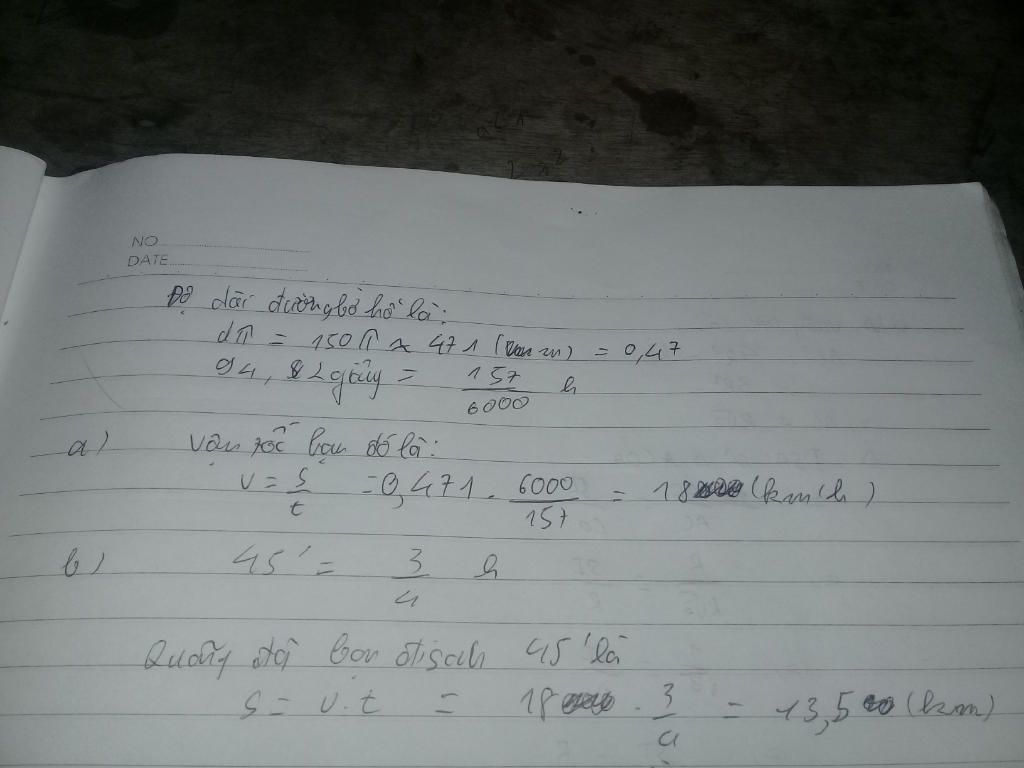 NO
DATE
Độ dài đường bờ hồ là:
dπ = 150π ≈ 471 (m) = 0,47
94,2 giây = 157/6000 h
a) Vận tốc bạn đó là:
v = s/t = 0,471 . 6000/157 = 18 (km/h)
b) 45' = 3/4 h
Quãng đg bạn đi sau 45' là
s = v.t = 18 . 3/4 = 13,5 (km)